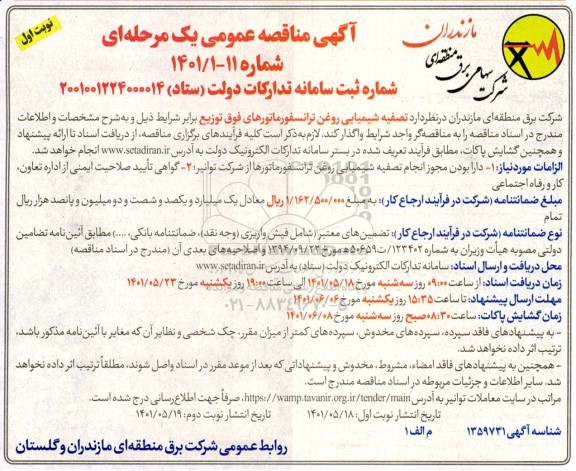 نوبت اول
مازندران
شرکت سهامی برق منطقه‌ای
آگهی مناقصه عمومی یک مرحله‌ای
شماره ۱۱-۱۴۰۱/۱
شماره ثبت سامانه تدارکات دولت (ستاد) ۲۰۰۱۰۰۱۲۲۴۰۰۰۰۱۴
شرکت برق منطقه‌ای مازندران درنظردارد تصفیه شیمیایی روغن ترانسفورماتورهای فوق توزیع برابر شرایط ذیل و به‌شرح مشخصات و اطلاعات
مندرج در اسناد مناقصه را به مناقصه‌گر واجد شرایط واگذار کند. لازم به‌ذکر است کلیه فرآیندهای برگزاری مناقصه، از دریافت اسناد تا ارائه پیشنهاد
و همچنین گشایش پاکات، مطابق فرآیند تعریف شده در بستر سامانه تدارکات الکترونیک دولت به آدرس www.setadiran.ir انجام خواهد شد.
الزامات موردنیاز: ۱- دارا بودن مجوز انجام تصفیه شیمیایی روغن ترانسفورماتورها از شرکت توانیر؛ ۲- گواهی تأیید صلاحیت ایمنی از اداره تعاون،
کار و رفاه اجتماعی
مبلغ ضمانتنامه (شرکت در فرآیند ارجاع کار): به مبلغ ۱/۱۶۲/۵۰۰/۰۰۰ ریال معادل یک میلیارد و یکصد و شصت و دو میلیون و پانصد هزار ریال
تمام
نوع ضمانتنامه (شرکت در فرآیند ارجاع کار): تضمین‌های معتبر (شامل فیش واریزی (وجه نقد)، ضمانتنامه بانکی، ....) مطابق آئین‌نامه تضامین
دولتی مصوبه هیأت وزیران به شماره ۱۲۳۴۰۲/ت۵۰۶۵۹ه مورخ ۱۳۹۴/۰۹/۲۲ و اصلاحیه‌های بعدی آن (مندرج در اسناد مناقصه)
محل دریافت و ارسال اسناد: سامانه تدارکات الکترونیک دولت (ستاد) به آدرس www.setadiran.ir
زمان دریافت اسناد: از ساعت ۰۹:۰۰ روز سه‌شنبه مورخ ۱۴۰۱/۰۵/۱۸ الی ساعت ۱۹:۰۰ روز یکشنبه مورخ ۱۴۰۱/۰۵/۲۳
مهلت ارسال پیشنهاد: تا ساعت ۱۵:۳۵ روز یکشنبه مورخ ۱۴۰۱/۰۶/۰۶
زمان گشایش پاکات: ساعت ۰۸:۳۰ صبح روز سه‌شنبه مورخ ۱۴۰۱/۰۶/۰۸
- به پیشنهادهای فاقد سپرده، سپرده‌های مخدوش، سپرده‌های کمتر از میزان مقرر، چک شخصی و نظایر آن که مغایر با آئین‌نامه مذکور باشد،
ترتیب اثر داده نخواهد شد.
- همچنین به پیشنهادهای فاقد امضاء، مشروط، مخدوش و پیشنهاداتی که بعد از موعد مقرر در اسناد واصل شوند، مطلقاً ترتیب اثر داده نخواهد
شد. سایر اطلاعات و جزئیات مربوطه در اسناد مناقصه مندرج است.
مراتب در سایت معاملات توانیر به آدرس https://wamp.tavanir.org.ir/tender/main، صرفاً جهت اطلاع‌رسانی درج شده است.
تاریخ انتشار نوبت اول: ۱۴۰۱/۰۵/۱۸ تاریخ انتشار نوبت دوم: ۱۴۰۱/۰۵/۱۹
شناسه آگهی ۱۳۵۹۷۳۱ م الف ۱
روابط عمومی شرکت برق منطقه‌ای مازندران و گلستان